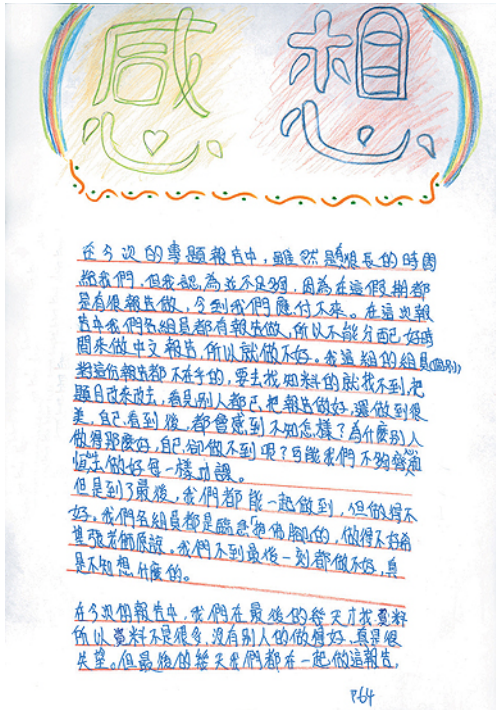 感想
在今次的專題報告中，雖然是有很長的時間
給我們，但我認為並不足夠，因為在這假期都
是有很報告做，令到我們應付不來。在這次報
告中我們各組員都有報告做，所以不能分配好時
間來做中文報告，所以就做不好。我這組的組員(個別)
對這份報告都不在乎的，要去找知料的就找不到，把
題目改來改去，看見別人都已把報告做好，還做到很
美，自己看到後，都會感到不知怎樣？為什麼別人
做得那麼好，自己卻做不到呢？可能我們不夠
做好每一樣功課。
但是到了最後，我們都能一起做到，但做得不
好。我們各組員都是臨急「抱佛腳」的，做得不好
張老師原諒。我們不到最後一刻都做不好，真
是不知想什麼的。
在今次的報告中，我們在最後的幾天才找資料
所以資料不是很多，沒有別人的做得好，真是很
失望。但最後的幾天我們都在一起做這報告，
P64